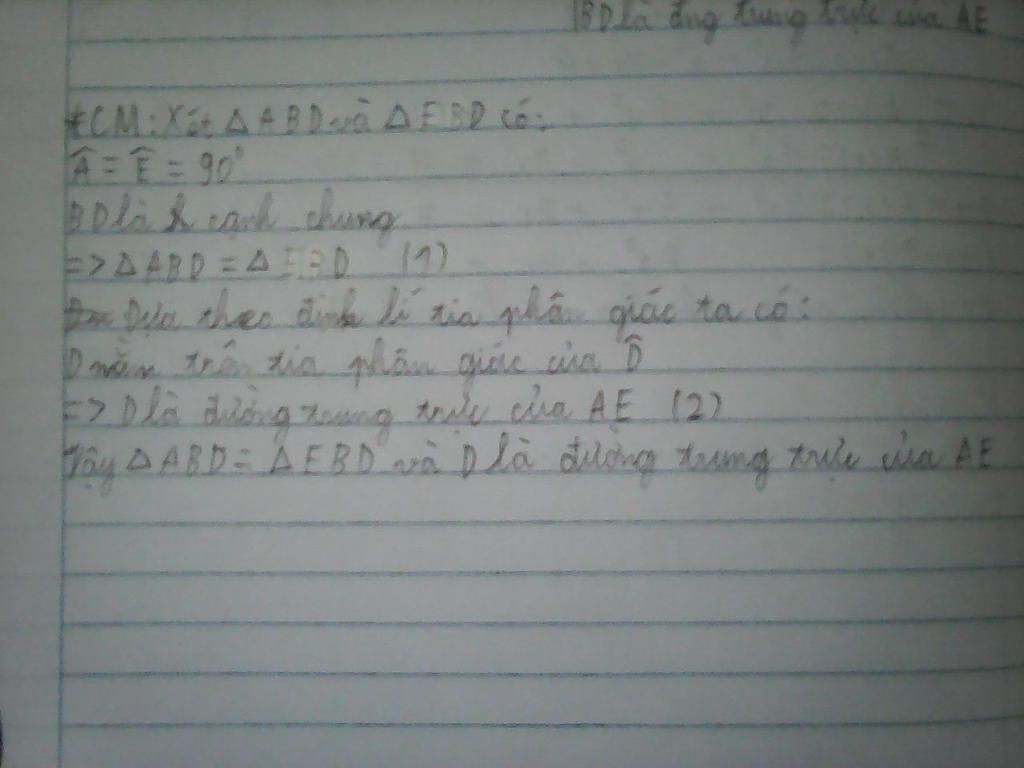 BD là đng trung trực của AE
*CM: Xét △ABD và △EBD có:
Â = Ê = 90°
BD là cạnh chung
=> △ABD = △EBD (1)
Dựa theo định lí tia phân giác ta có:
D nằm trên tia phân giác của D̂
=> D là đường trung trực của AE (2)
Vậy △ABD = △EBD và D là đường trung trực của AE